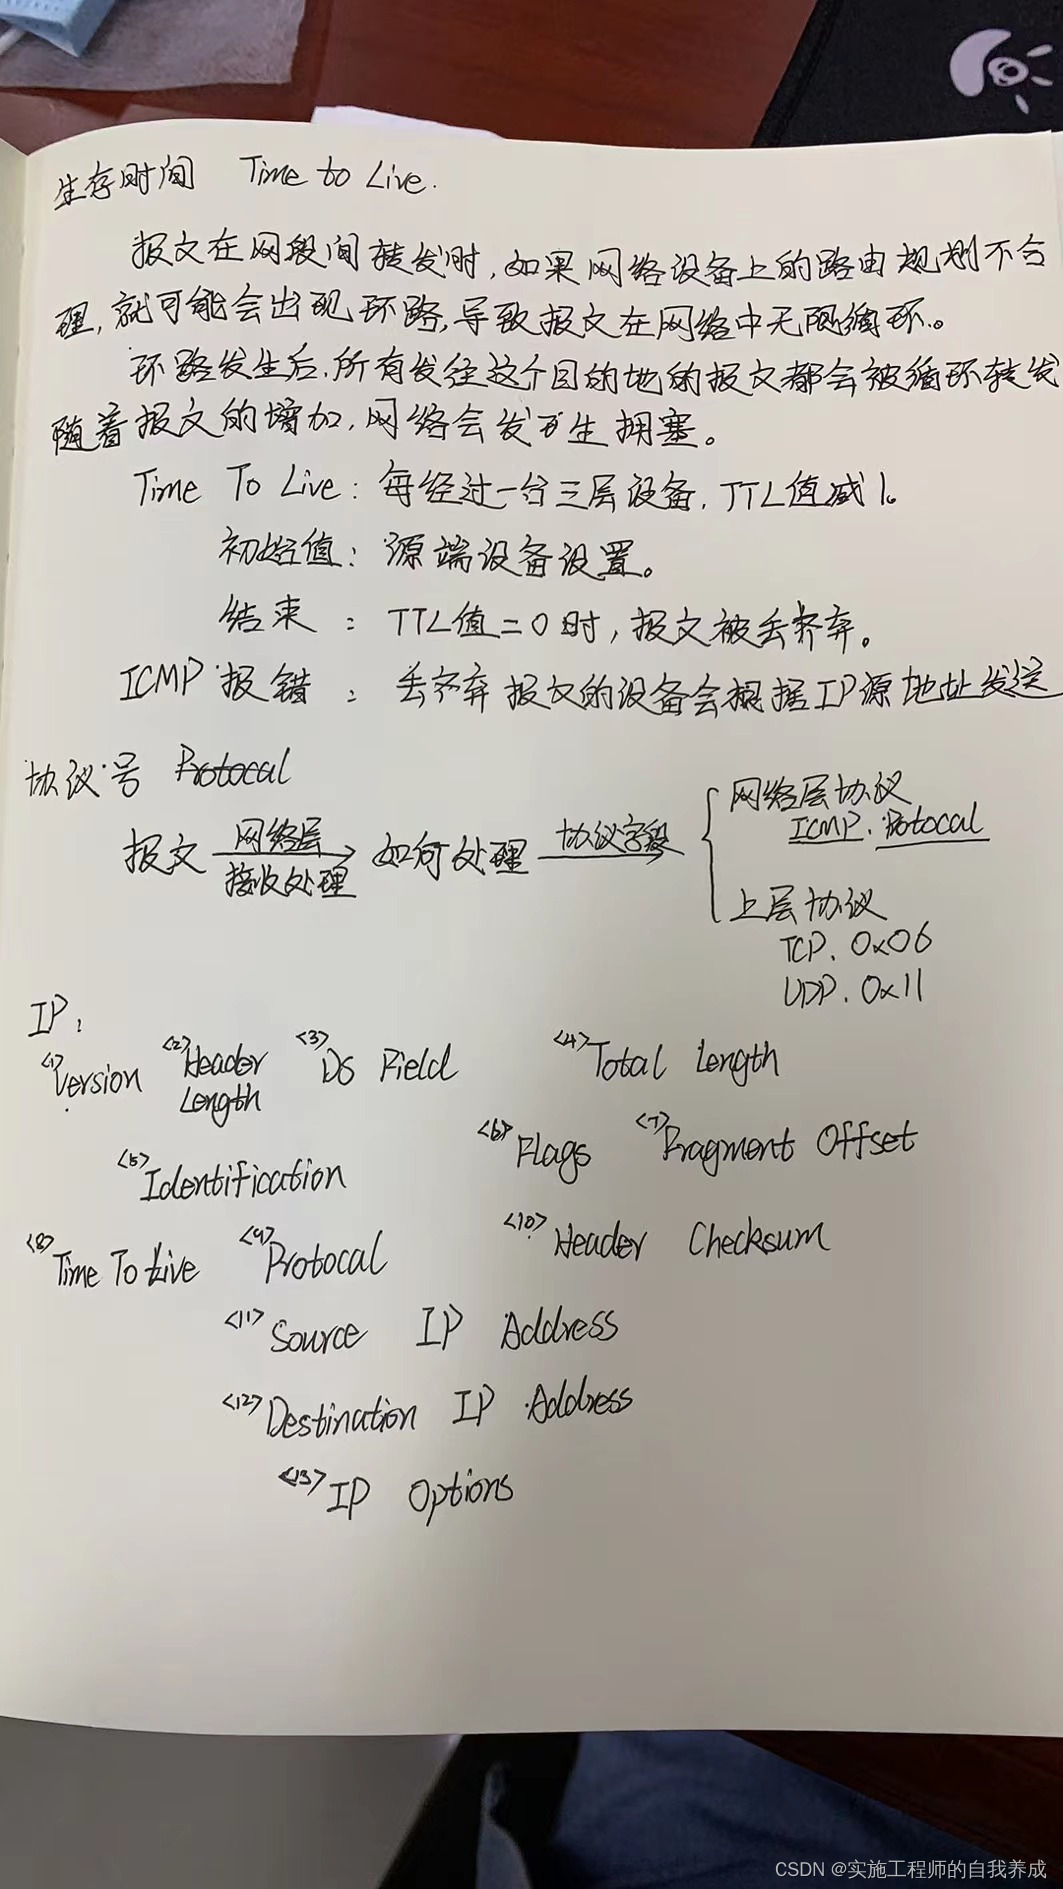 生存时间 Time to Live.
报文在网段间转发时,如果网络设备上的路由规划不合
理,就可能会出现环路,导致报文在网络中无限循环。
环路发生后,所有发往这个目的地的报文都会被循环转发
随着报文的增加,网络会发生拥塞。
Time To Live: 每经过一台三层设备,TTL值减1。
初始值: 源端设备设置。
结束: TTL值=0时,报文被丢弃。
ICMP报错: 丢弃报文的设备会根据IP源地址发送
协议号 Protocal
报文 网络层 接收处理 如何处理 协议字段
网络层协议
ICMP. Protocal
上层协议
TCP. 0x06
UDP. 0x11
IP:
<1>Version <2>Header Length <3>DS Field <4>Total Length
<5>Identification <6>Flags <7>Fragment Offset
<8>Time To Live <9>Protocal <10>Header Checksum
<11>Source IP Address
<12>Destination IP Address
<13>IP Options
CSDN @实施工程师的自我养成